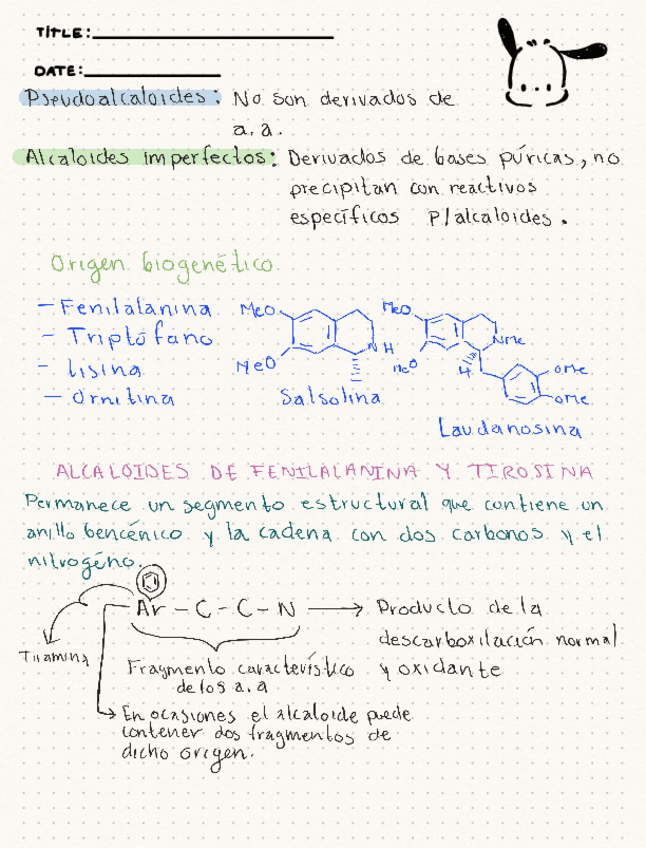 TITLE:
DATE:
Pseudoalcaloides: No son derivados de
a.a.
Alcaloides imperfectos: Derivados de bases púricas, no
precipitan con reactivos
específicos p/alcaloides.
Origen biogenético
- Fenilalanina
- Triptófano
- Lisina
- Ornitina
MeO
MeO
N H
Salsolina
MeO
MeO
NMe
H
OMe
OMe
Laudanosina
ALCALOIDES DE FENILALANINA Y TIROSINA
Permanece un segmento estructural que contiene un
anillo bencénico y la cadena con dos carbonos y el
nitrogéno.
Ar - C - C - N → Producto de la
descarboxilación normal
y oxidante
Tiramina
Fragmento característico
de los a.a
En ocasiones el alcaloide puede
contener dos fragmentos de
dicho origen.